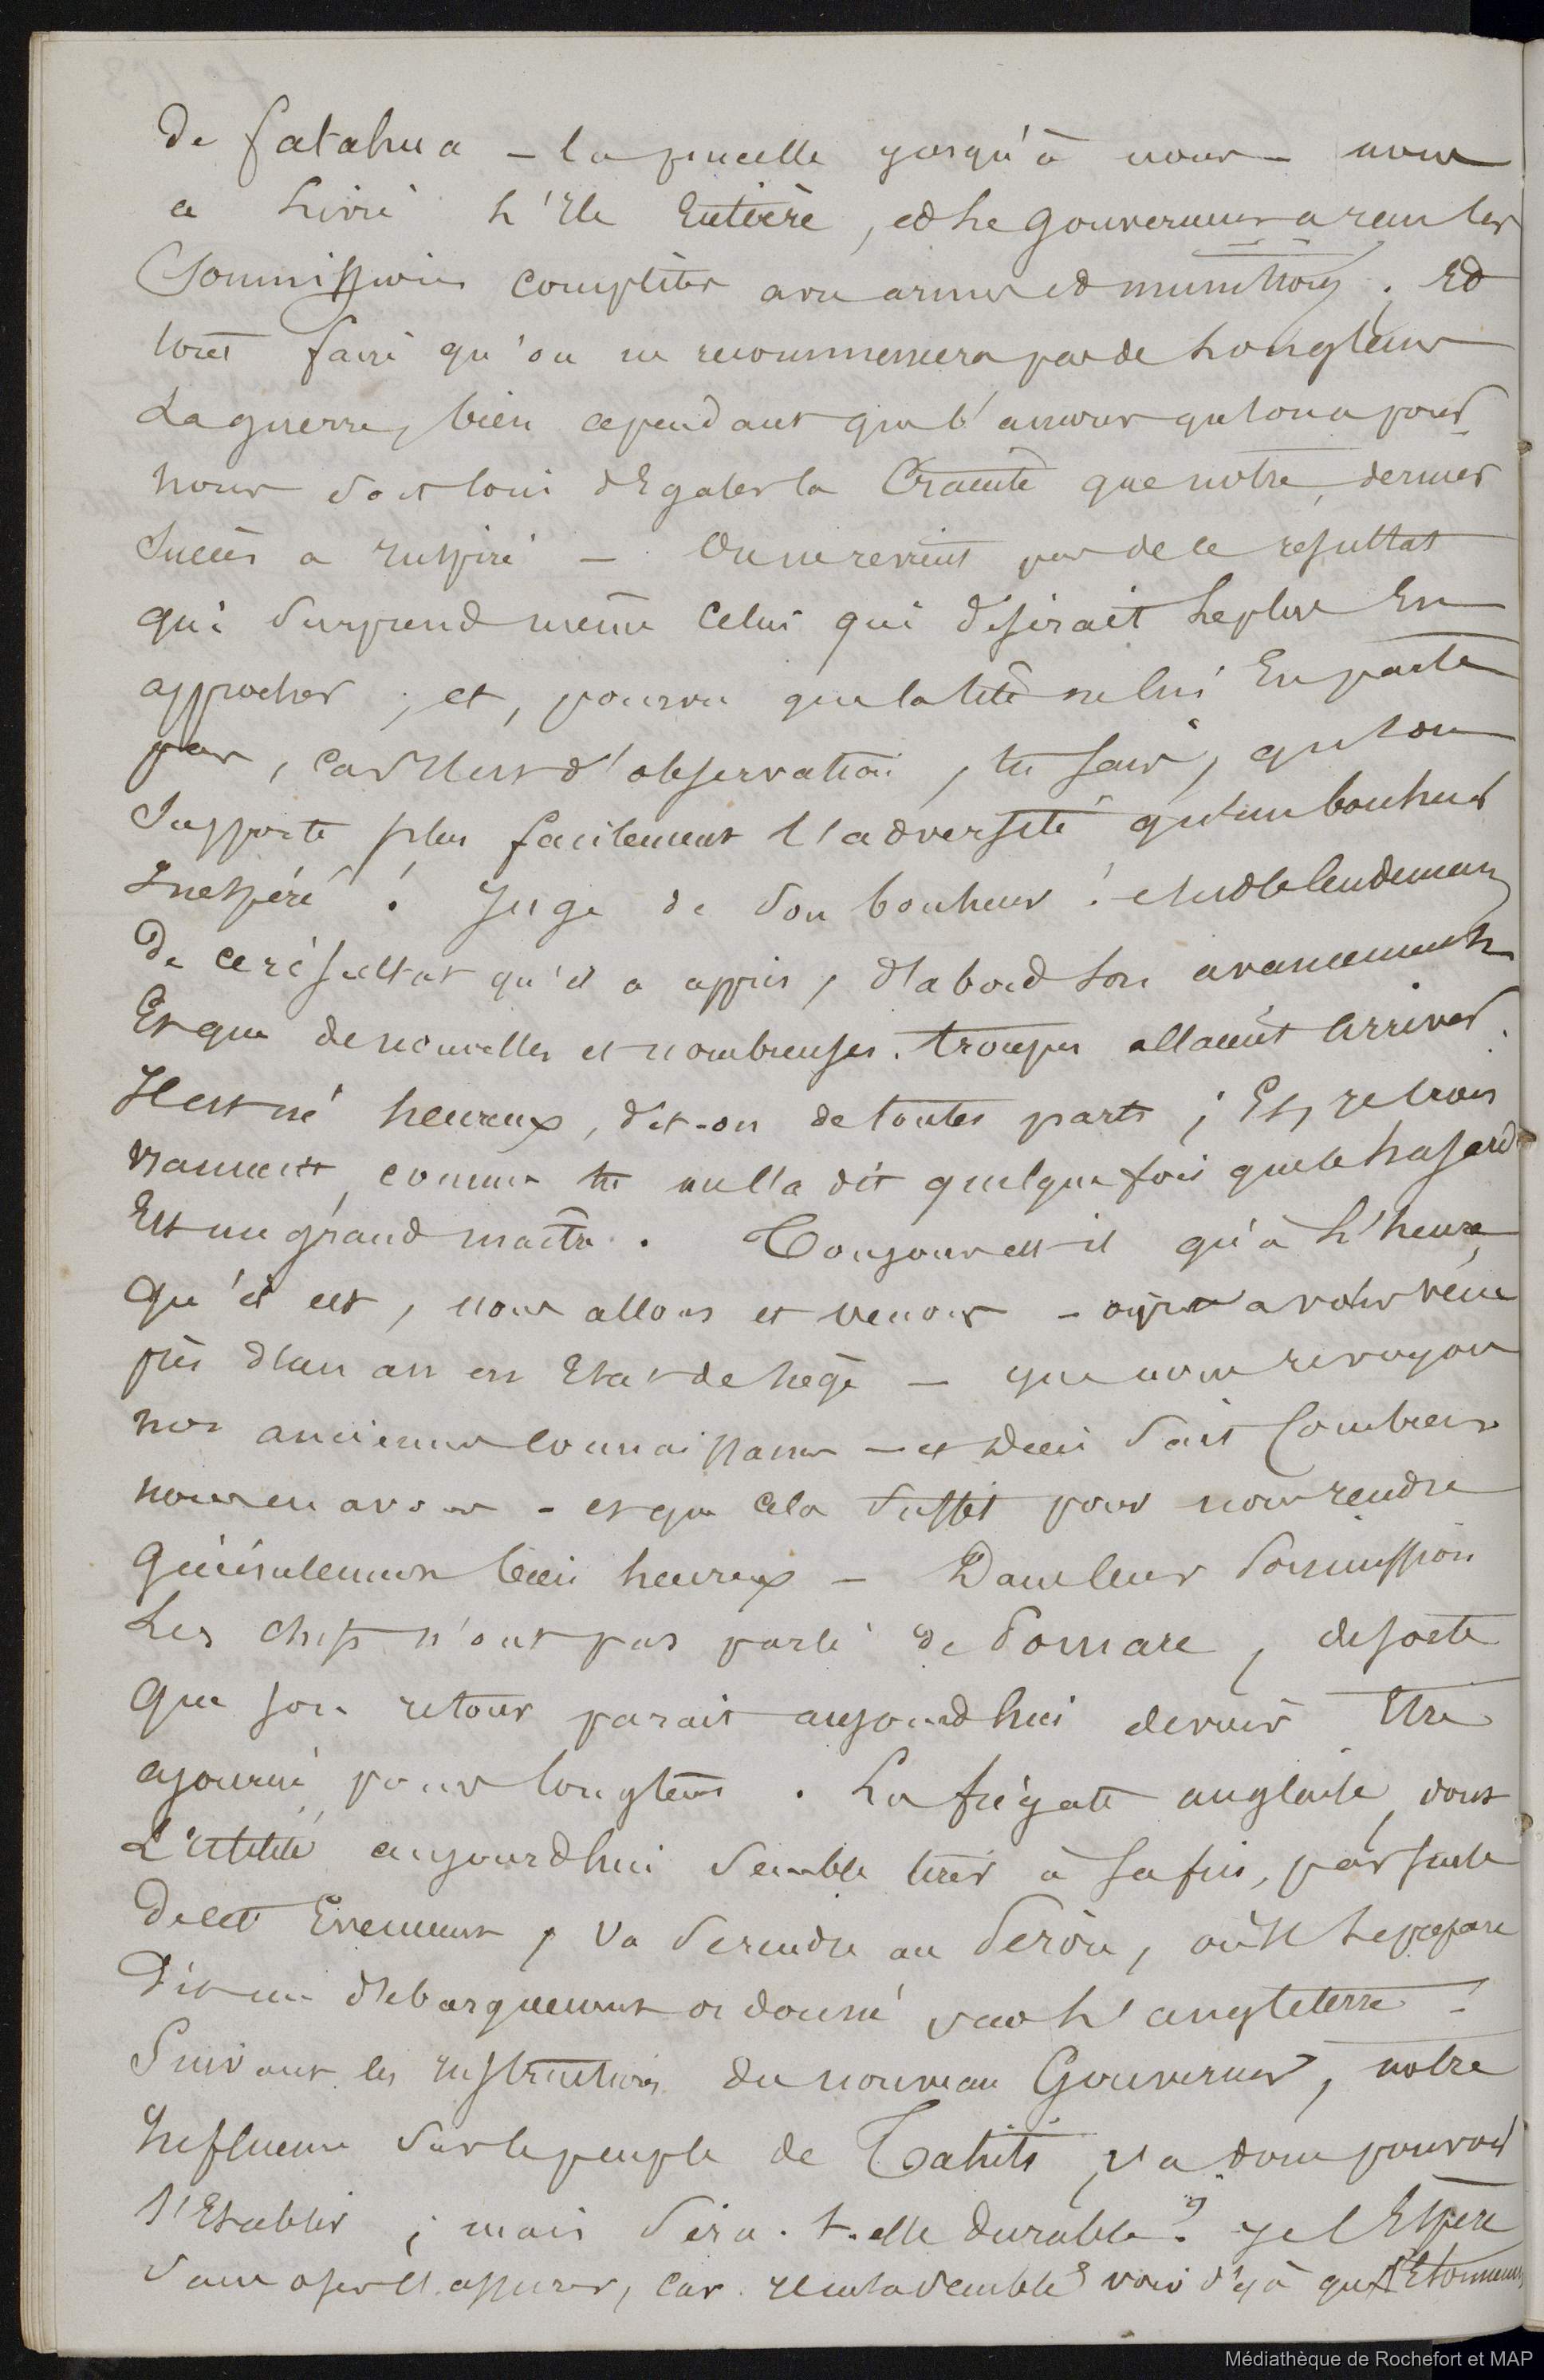 de fatahua - la pucelle jusqu'à nous - nous
a livré l'Ile Entière, et le gouverneur a reçu les
Soumissions complètes avec armes et munitions. Et
tout fait qu'on ne recommencera pas de longtems
La guerre, bien cependant que l'amour qu'on a pour
nous soit loin d'Egaler la Crainte que notre dernier
Succès a Inspiré - On ne revient pas de ce résultat
qui surprend même celui qui désirait le plus En
approcher ; et, pourvu que la tête ne lui En parte
pas, car Il est d'observation, tu sais, qu'on
supporte plus facilement l'adversité qu'un bonheur
Inespéré ! Juge de son bonheur ! c'est le lendemain
De ce résultat qu'il a appris, d'abord son avancement
Et que de nouvelles et nombreuses troupes allaient arriver.
Il est né heureux, dit-on de toutes parts ; Et, je crois
vraiment, comme tu me l'a dit quelque fois que le hasard
Est un grand maître. Toujours est-il qu'à l'heure
Qu'il est, nous allons et venons - après avoir vécu
près d'un an en Etat de siège - que nous revoyons
nos anciennes connaissances - et Dieu sait Combien
nous en avons - et que cela suffit pour nous rendre
Généralement bien heureux - Dans leur soumission
Les chefs n'ont pas parlé de Pomaré, de sorte
Que son retour parait aujourd'hui devoir Etre
ajourné pour longtems. La frégate anglaise, dont
L'utilité aujourd'hui semble tirer à sa fin, par suite
De cet Evénement, va se rendre au Pérou, où Il se prépare
Dit-on un débarquement ordonné par l'angleterre !
Suivant les Instructions du nouveau Gouverneur, notre
Influence sur le peuple de Tahiti, va donc pouvoir
s'Etablir ; mais sera-t-elle durable ? je l'Espère
sans oser l'assurer, car Il me semble voir déjà que l'Etonnement
Médiathèque de Rochefort et MAP